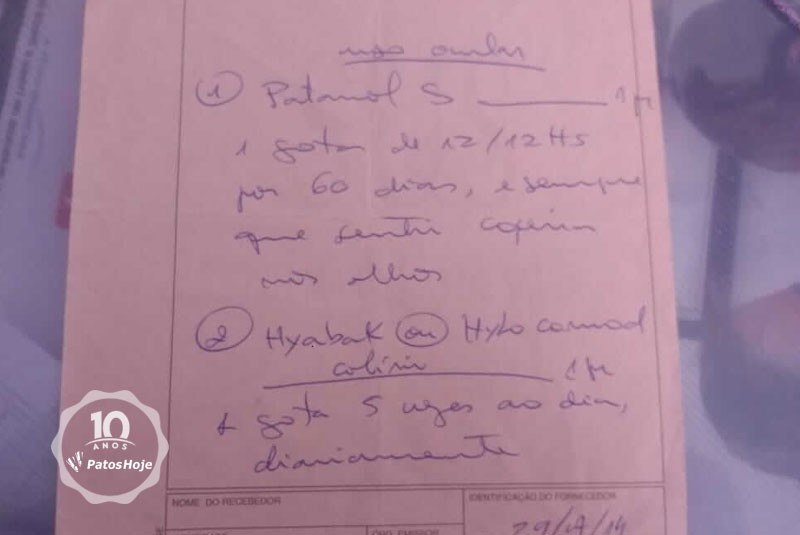 uso ocular
① Patanol S ________ 1 fr
1 gota de 12/12 Hs
por 60 dias, e sempre
que sentir coceira
nos olhos
② Hyabak ou Hylo comod
colírio ________ 1 fr
1 gota 5 vezes ao dia,
diariamente
NOME DO RECEBEDOR
IDENTIFICAÇÃO DO FORNECEDOR
ÓRG. EMISSOR
10
ANOS
PatosHoje